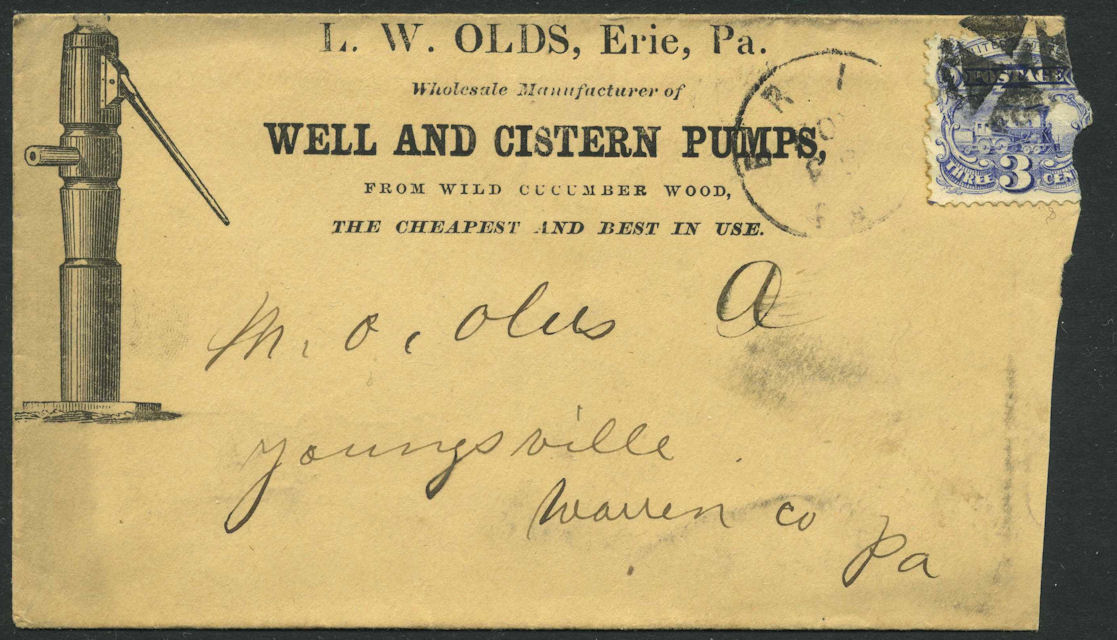 L. W. OLDS, Erie, Pa.
Wholesale Manufacturer of
WELL AND CISTERN PUMPS,
FROM WILD CUCUMBER WOOD,
THE CHEAPEST AND BEST IN USE.
ERI
POSTAGE
THREE 3 CEN
M. O. Olds A
Youngsville
Warren co
Pa